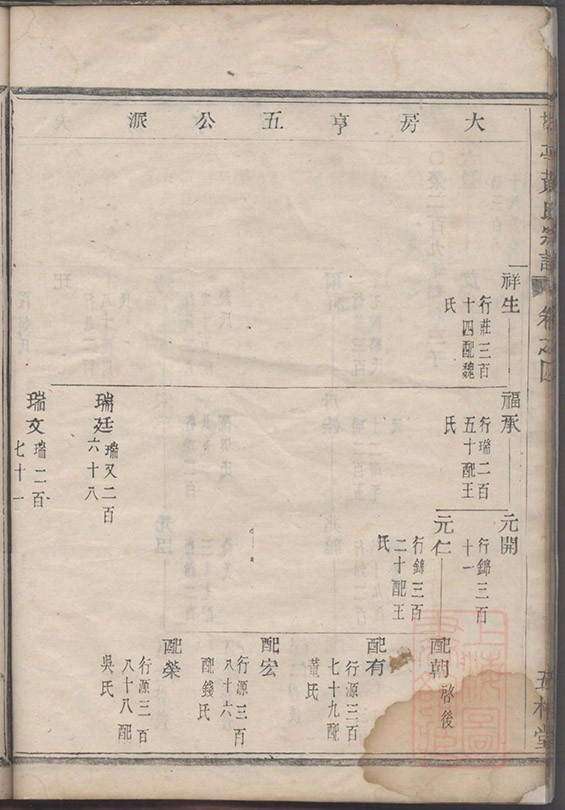 大房亨五公派
祥生
行莊三百
十四配魏
氏
福承
行瑞二百
五十配王
氏
瑞廷
瑞又二百
六十八
瑞文
瑞二百
七十一
元開
行錦三百
十一
元仁
行錦三百
二十配王
氏
配朝
啓後
配有
行源三百
七十九配
董氏
配宏
行源三百
八十六
配錢氏
配榮
行源三百
八十八配
吳氏
黃氏宗譜
卷之四